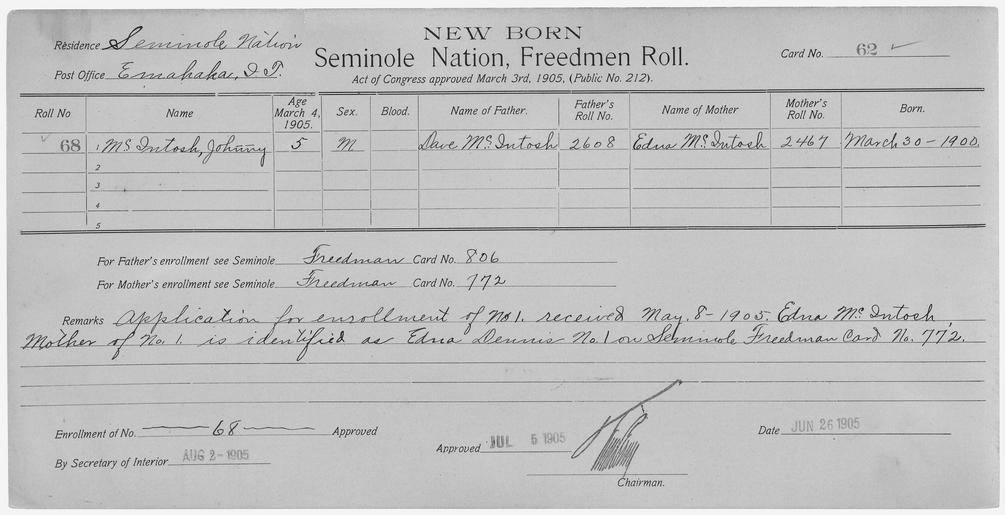 NEW BORN
Residence Seminole Nation
Seminole Nation, Freedmen Roll.
Card No. 62
Post Office Emahaka, I.T.
Act of Congress approved March 3rd, 1905, (Public No. 212).
Roll No Name Age March 4, 1905. Sex. Blood. Name of Father. Father's Roll No. Name of Mother Mother's Roll No. Born.
68 1 McIntosh, Johnny 5 M Dave McIntosh 2608 Edna McIntosh 2467 March 30-1900.
2
3
4
5
For Father's enrollment see Seminole Freedman Card No. 806
For Mother's enrollment see Seminole Freedman Card No. 772
Remarks Application for enrollment of No 1. received May. 8-1905. Edna McIntosh,
Mother of No. 1. is identified as Edna Dennis No. 1 on Seminole Freedman Card No. 772.
Enrollment of No. 68 Approved
Approved JUL 5 1905
Date JUN 26 1905
By Secretary of Interior AUG 2-1905
Chairman.